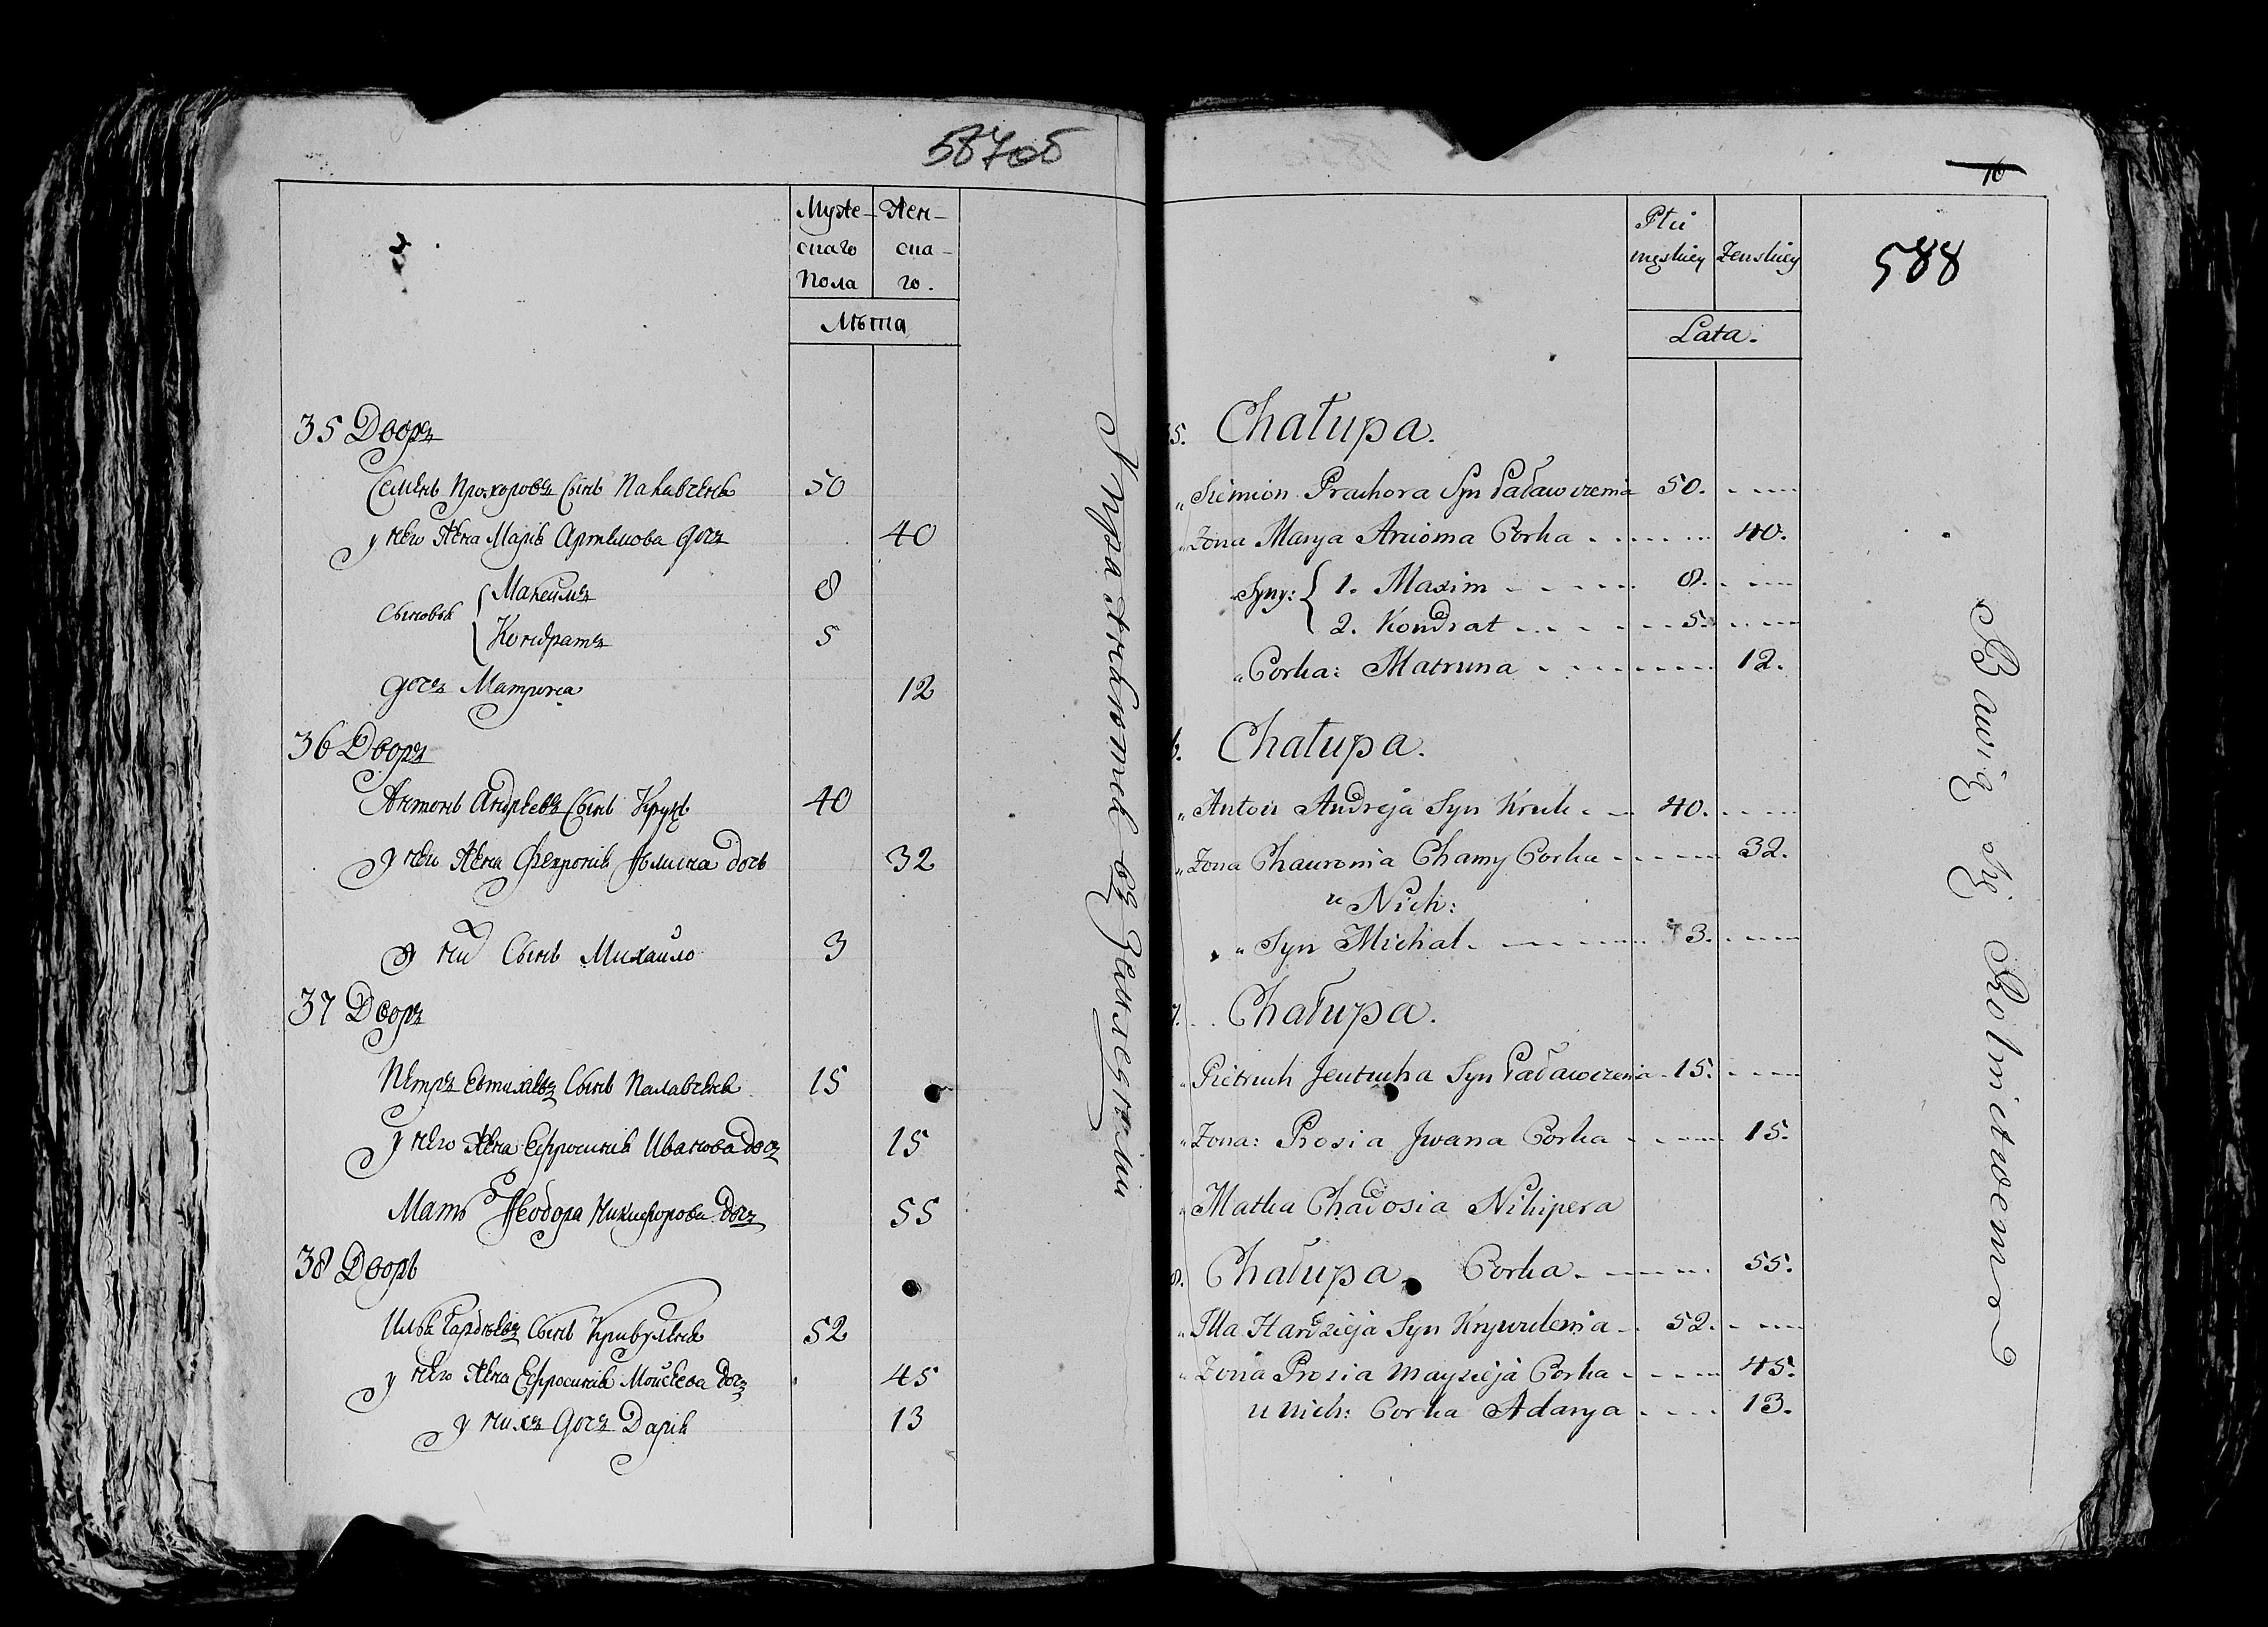 587об
Муже- Жен-
скаго ска-
Пола го.
Лѣта
35 Дворъ
Семенъ Прохоровъ Сынъ Палавченя 50
у него Жена Марія Артемова дочъ 40
Сыновья { Максимъ 8
Кондратъ 5
дочъ Матруна 12
36 Дворъ
Антонъ Андреевъ Сынъ Крукъ 40
у неи Жена Февронія Фомина дочь 32
у ни Сынъ Михаило 3
37 Дворъ
Петръ Евтихіевъ Сынъ Палавченя 15
у него Жена Ефросинія Иванова дочъ 15
Мать Феодора Никифорова дочъ 55
38 Дворъ
Илья Гардѣевъ Сынъ Кривулѣня 52
у него Жена Ефросинія Моисеева дочъ 45
у нихъ дочъ Дарія 13
Упражняются въ Земледелии
10
588
Płci
męskiey Żenskiey
Lata.
5. Chałupa.
„ Siemion Prachora Syn Paławczenia 50.
„ Żona Marya Arcioma Corka 40.
„ Syny: { 1. Maxim 8.
2. Kondrat 5.
„ Corka: Matruna 12.
6. Chałupa.
„ Anton Andreja Syn Kruk 40.
„ Żona Chauronia Chamy Corka 32.
u Nich:
„ Syn Michał 3.
7. Chałupa.
„ Pietruch Jeutucha Syn Paławczenia 15.
„ Żona: Prosia Jwana Corka 15.
„ Matka Chadosia Nikipera
8. Chałupa. Corka 55.
„ Illa Hardzieja Syn Krywulenia 52.
„ Żona Prosia Mayzieja Corka 45.
u nich: Corka Adarya 13.
Bawią się Rolnictwem